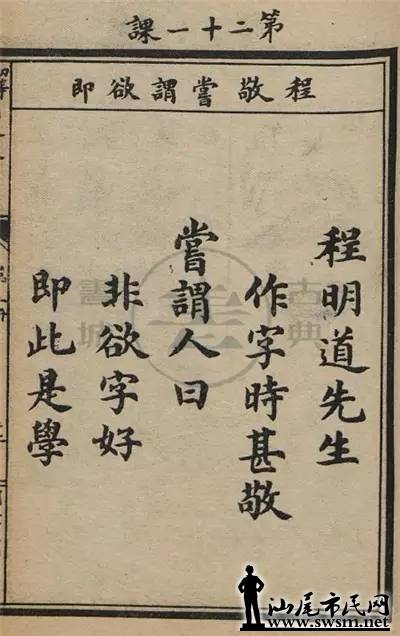 第二十一課
程敬嘗謂欲即
程明道先生
作字時甚敬
嘗謂人曰
非欲字好
即此是學
古典
書城
汕尾市民网
www.swsm.net